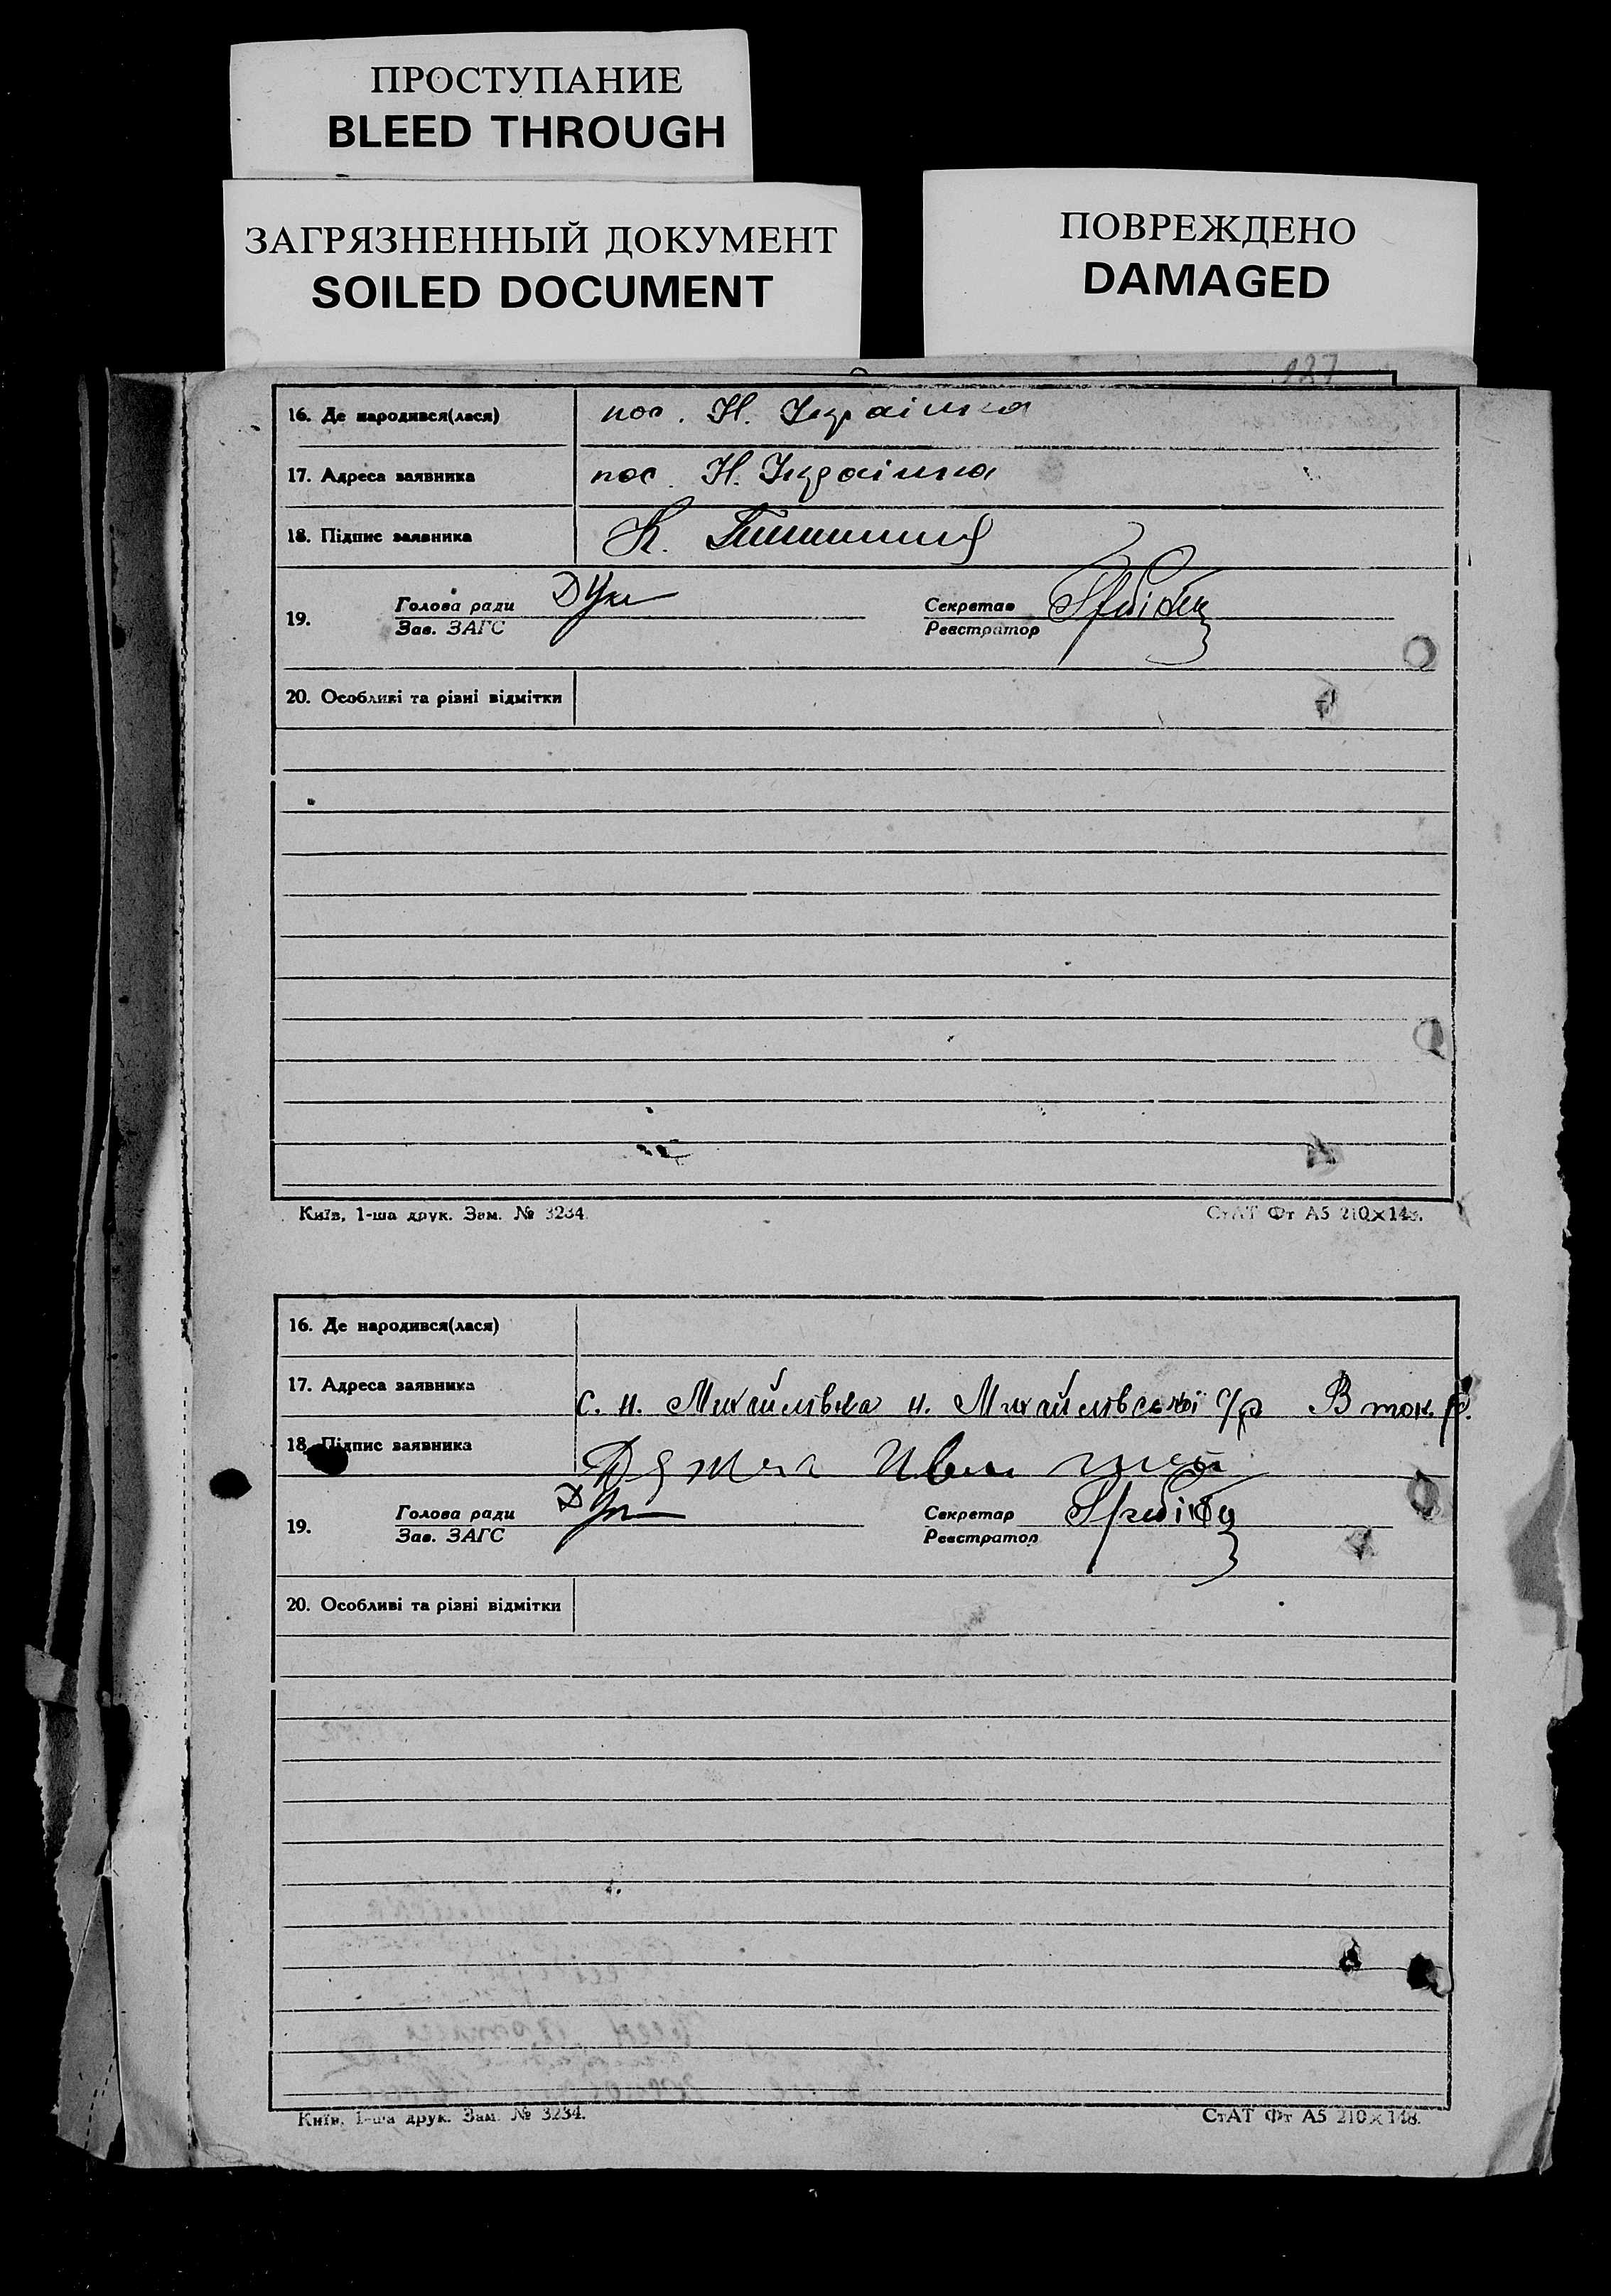 ПРОСТУПАНИЕ
BLEED THROUGH
ЗАГРЯЗНЕННЫЙ ДОКУМЕНТ
SOILED DOCUMENT
ПОВРЕЖДЕНО
DAMAGED
127
16. Де народився(лася) пос. Н. Украінка
17. Адреса заявника пос. Н. Украінка
18. Підпис заявника К.
19. Голова ради Секретар
Зав. ЗАГС Реєстратор
20. Особливі та різні відмітки
Київ, 1-ша друк. Зам. № 3234. СтАТ Фт А5 210×148.
16. Де народився(лася)
17. Адреса заявника с. н. Михайлівка н. Михайлівської с/р В ток. р.
18. Підпис заявника
19. Голова ради Секретар
Зав. ЗАГС Реєстратор
20. Особливі та різні відмітки
Київ, 1-ша друк. Зам. № 3234. СтАТ Фт А5 210×148.